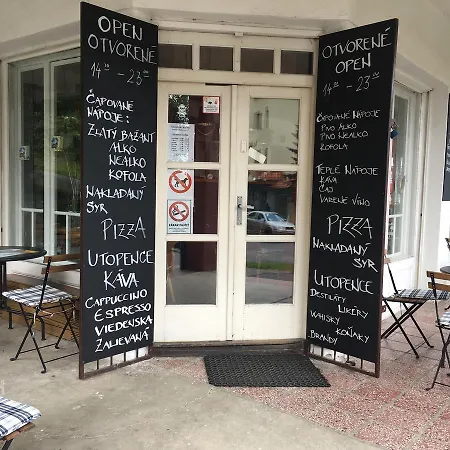 OPEN
OTVORENÉ
14³⁰ - 23⁰⁰
ČAPOVANÉ
NÁPOJE:
ZLATÝ BAŽANT
ALKO
NEALKO
KOFOLA
NAKLADANÝ
SYR
PIZZA
UTOPENCE
KÁVA
CAPPUCCINO
ESPRESSO
VIEDENSKÁ
ZALIEVANÁ
OTVORENÉ
OPEN
14³⁰ - 23⁰⁰
ČAPOVANÉ NÁPOJE
PIVO ALKO
PIVO NEALKO
KOFOLA
TEPLÉ NÁPOJE
KÁVA
ČAJ
VARENÉ VÍNO
PIZZA
NAKLADANÝ
SYR
UTOPENCE
DESTILÁTY
LIKÉRY
WHISKY
KOŇAKY
BRANDY